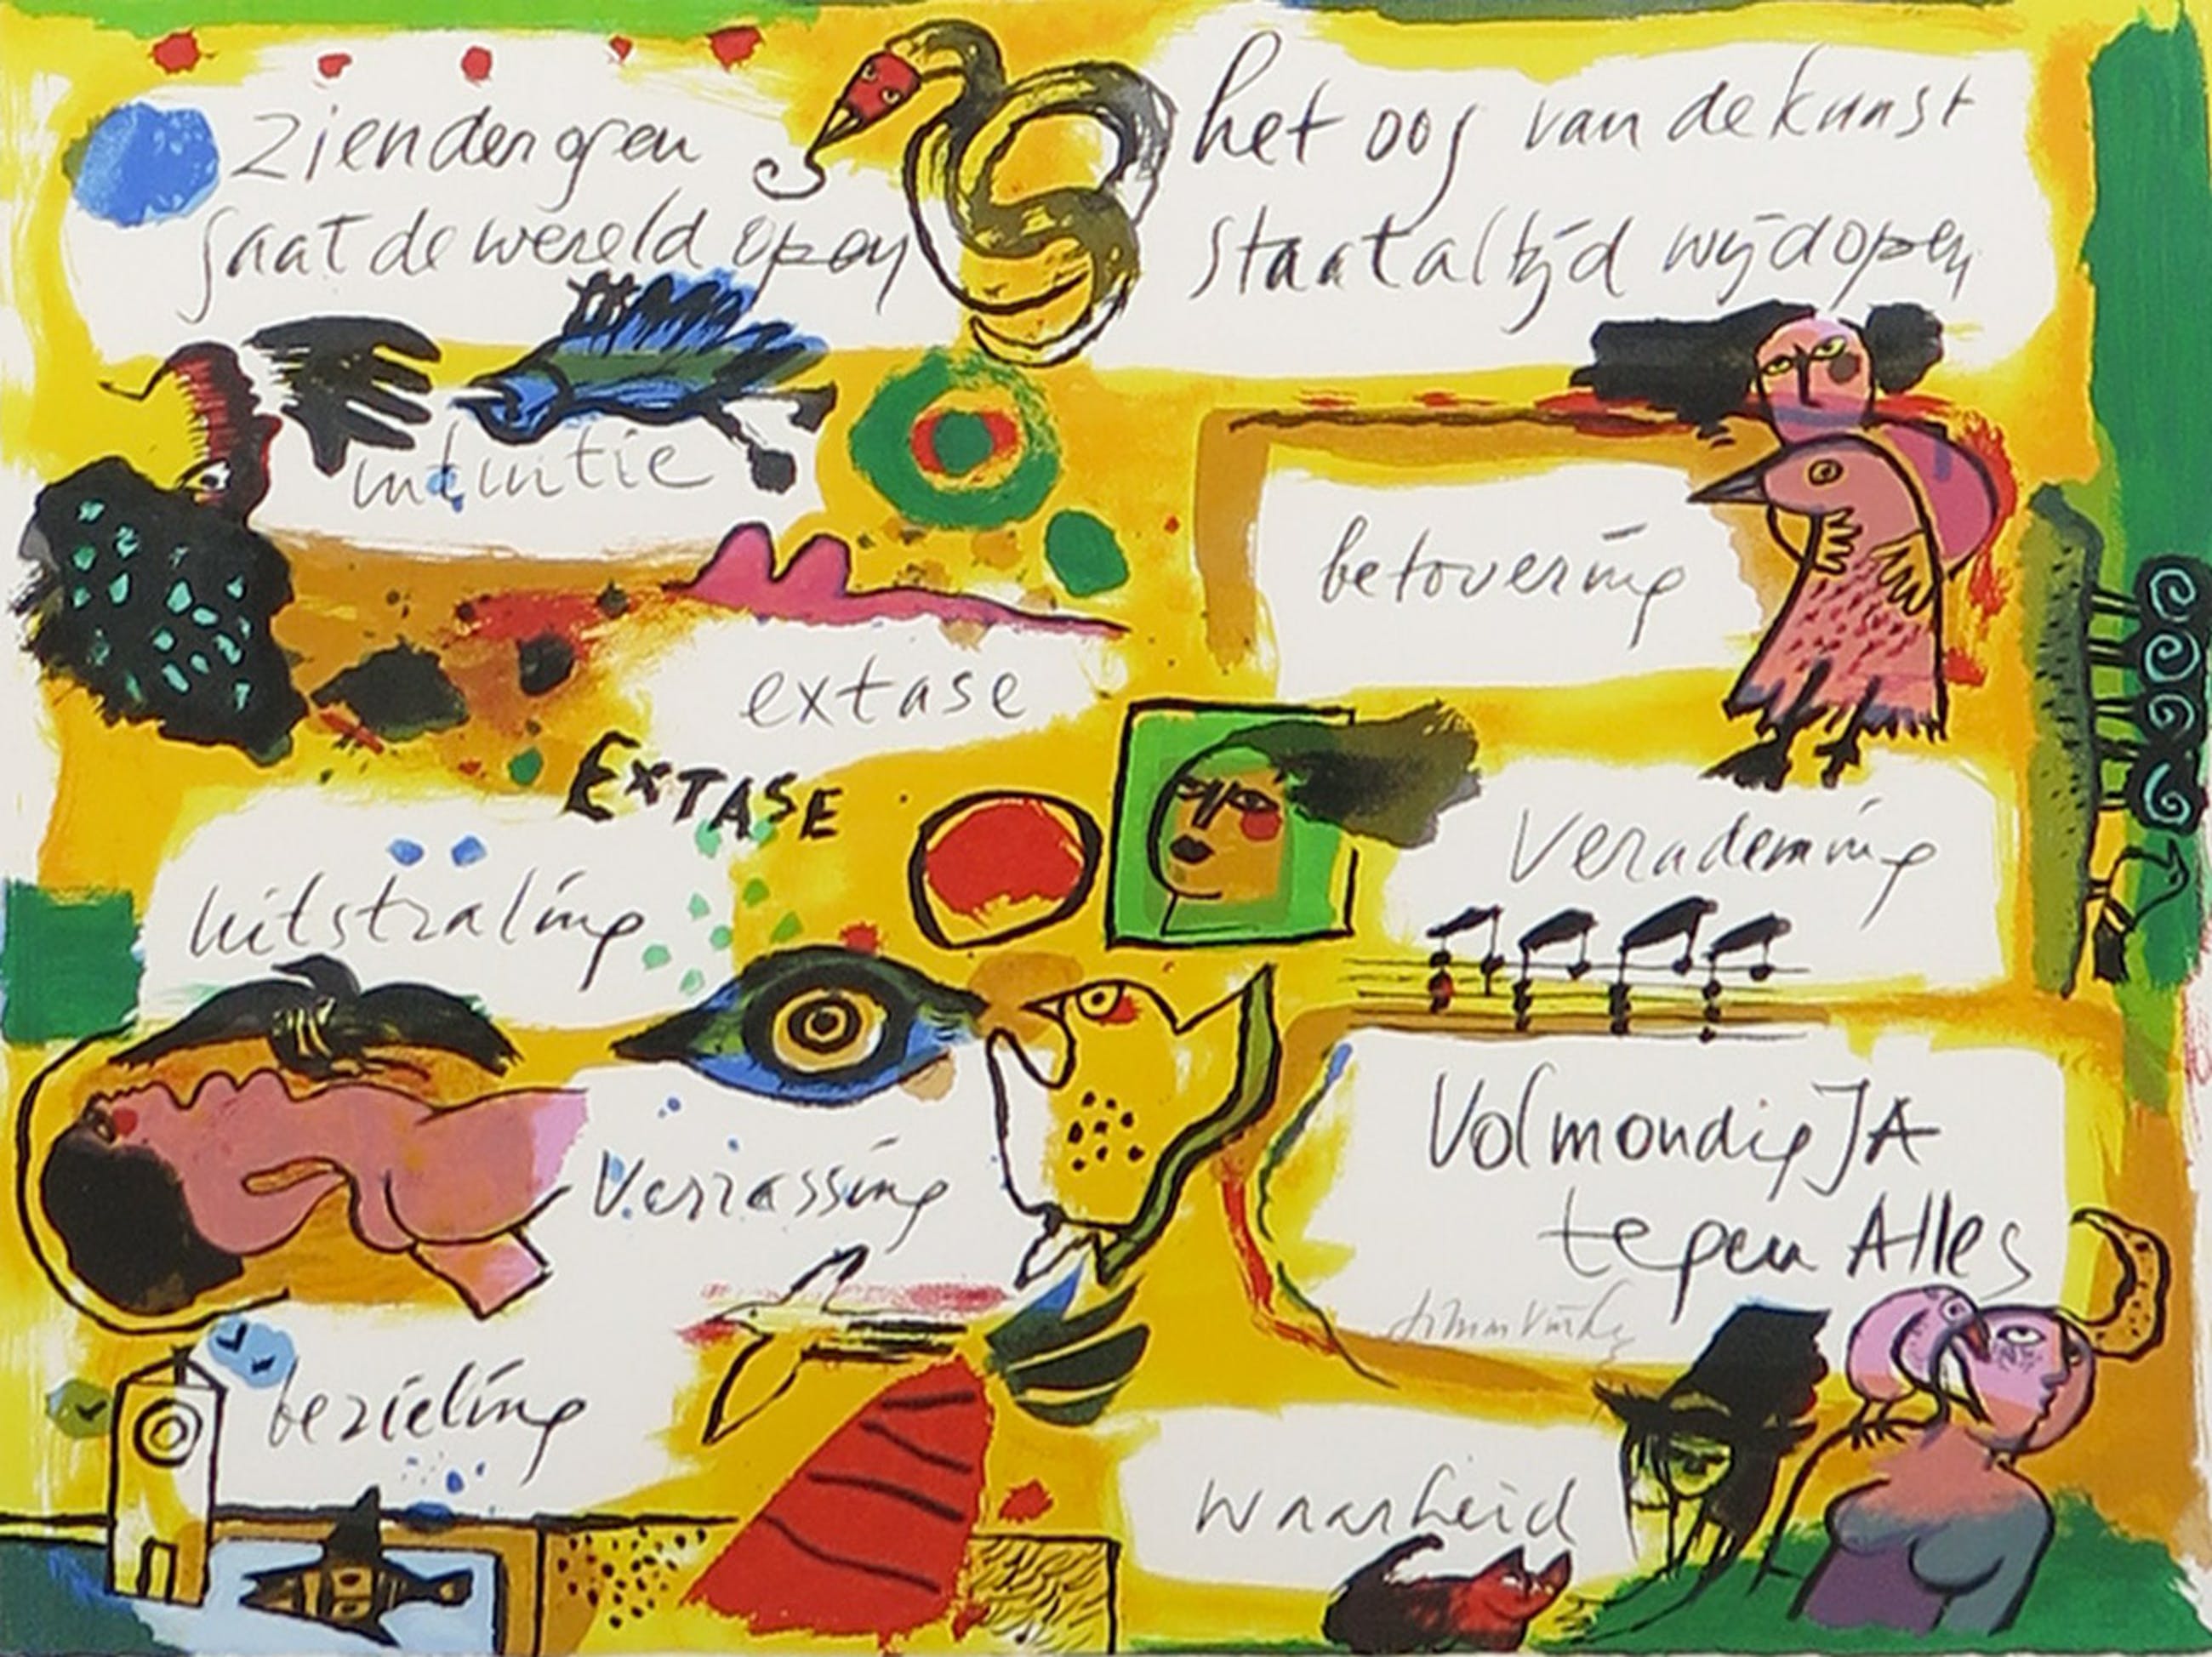 ziender ogen
gaat de wereld open
het oog van de kunst
staat altijd wijd open
intuitie
betovering
extase
EXTASE
verademing
uitstraling
Volmondig JA
tegen Alles
Verrassing
bezieling
waarheid